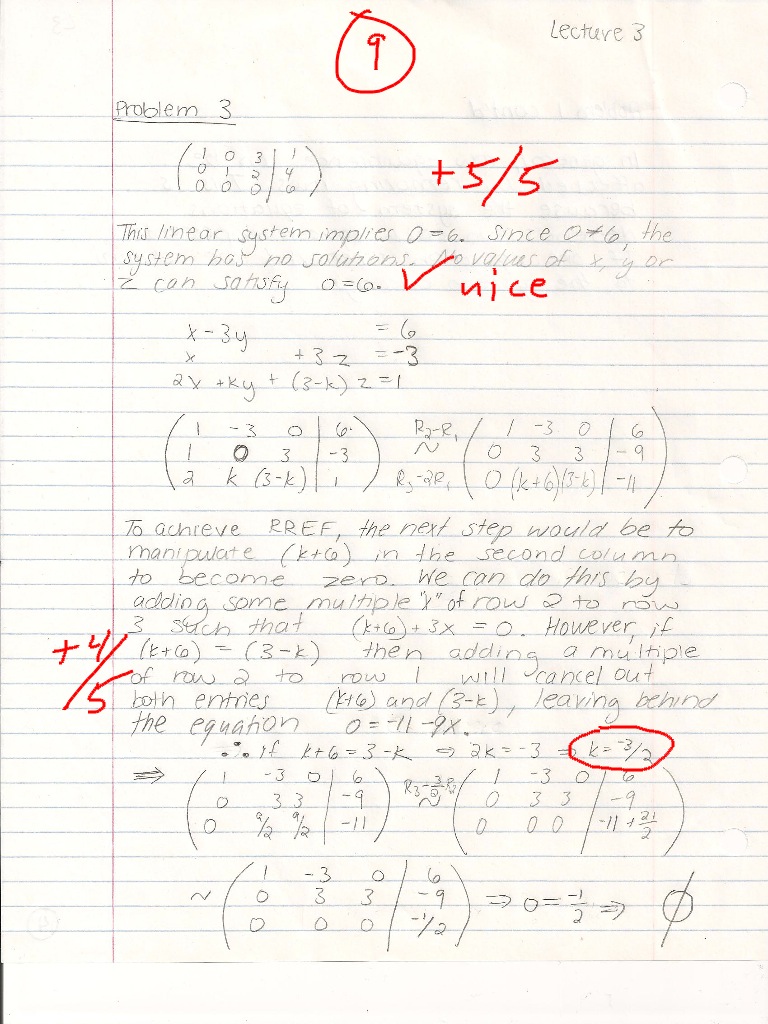 Lecture 3
9
Problem 3
( 1 0 3 | 1
0 1 2 | 4
0 0 0 | 6 )
+5/5
This linear system implies 0=6. Since 0≠6, the
system has no solutions. No values of x, y or
z can satisfy 0=6. ✓ nice
x - 3y = 6
x + 3z = -3
2x + ky + (3-k) z = 1
( 1 -3 0 | 6 R2-R1 ( 1 -3 0 | 6
1 0 3 | -3 ~ 0 3 3 | -9
2 k (3-k) | 1 ) R3-2R1 0 (k+6) (3-k) | -11 )
To achieve RREF, the next step would be to
manipulate (k+6) in the second column
to become zero. We can do this by
adding some multiple "x" of row 2 to row
3 such that (k+6)+3x = 0. However, if
+4/5
(k+6) = (3-k) then adding a multiple
of row 2 to row 1 will cancel out
both entries (k+6) and (3-k), leaving behind
the equation 0=-11-9x.
∴ if k+6=3-k ⇒ 2k=-3 ⇒ k=-3/2
⇒ ( 1 -3 0 | 6 ( 1 -3 0 | 6
0 3 3 | -9 R3-3/2R2 ~ 0 3 3 | -9
0 9/2 9/2 | -11 ) 0 0 0 | -11+21/2 )
( 1 -3 0 | 6
~ 0 3 3 | -9 ⇒ 0=-1/2 ⇒ ∅
0 0 0 | -1/2 )